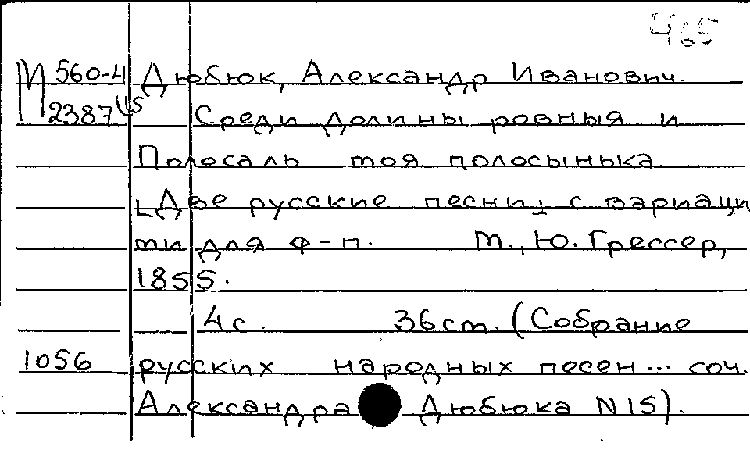 465
М 560-4 Дюбюк, Александр Иванович.
2387 Среди долины ровныя и
Полосаль моя полосынька
[Две русские песни] с вариаци
ми для ф-п. М., Ю. Грессер,
1855.
4 с. 36 cm. (Собрание
1056 русских народных песен... соч.
Александра Дюбюка N 15).